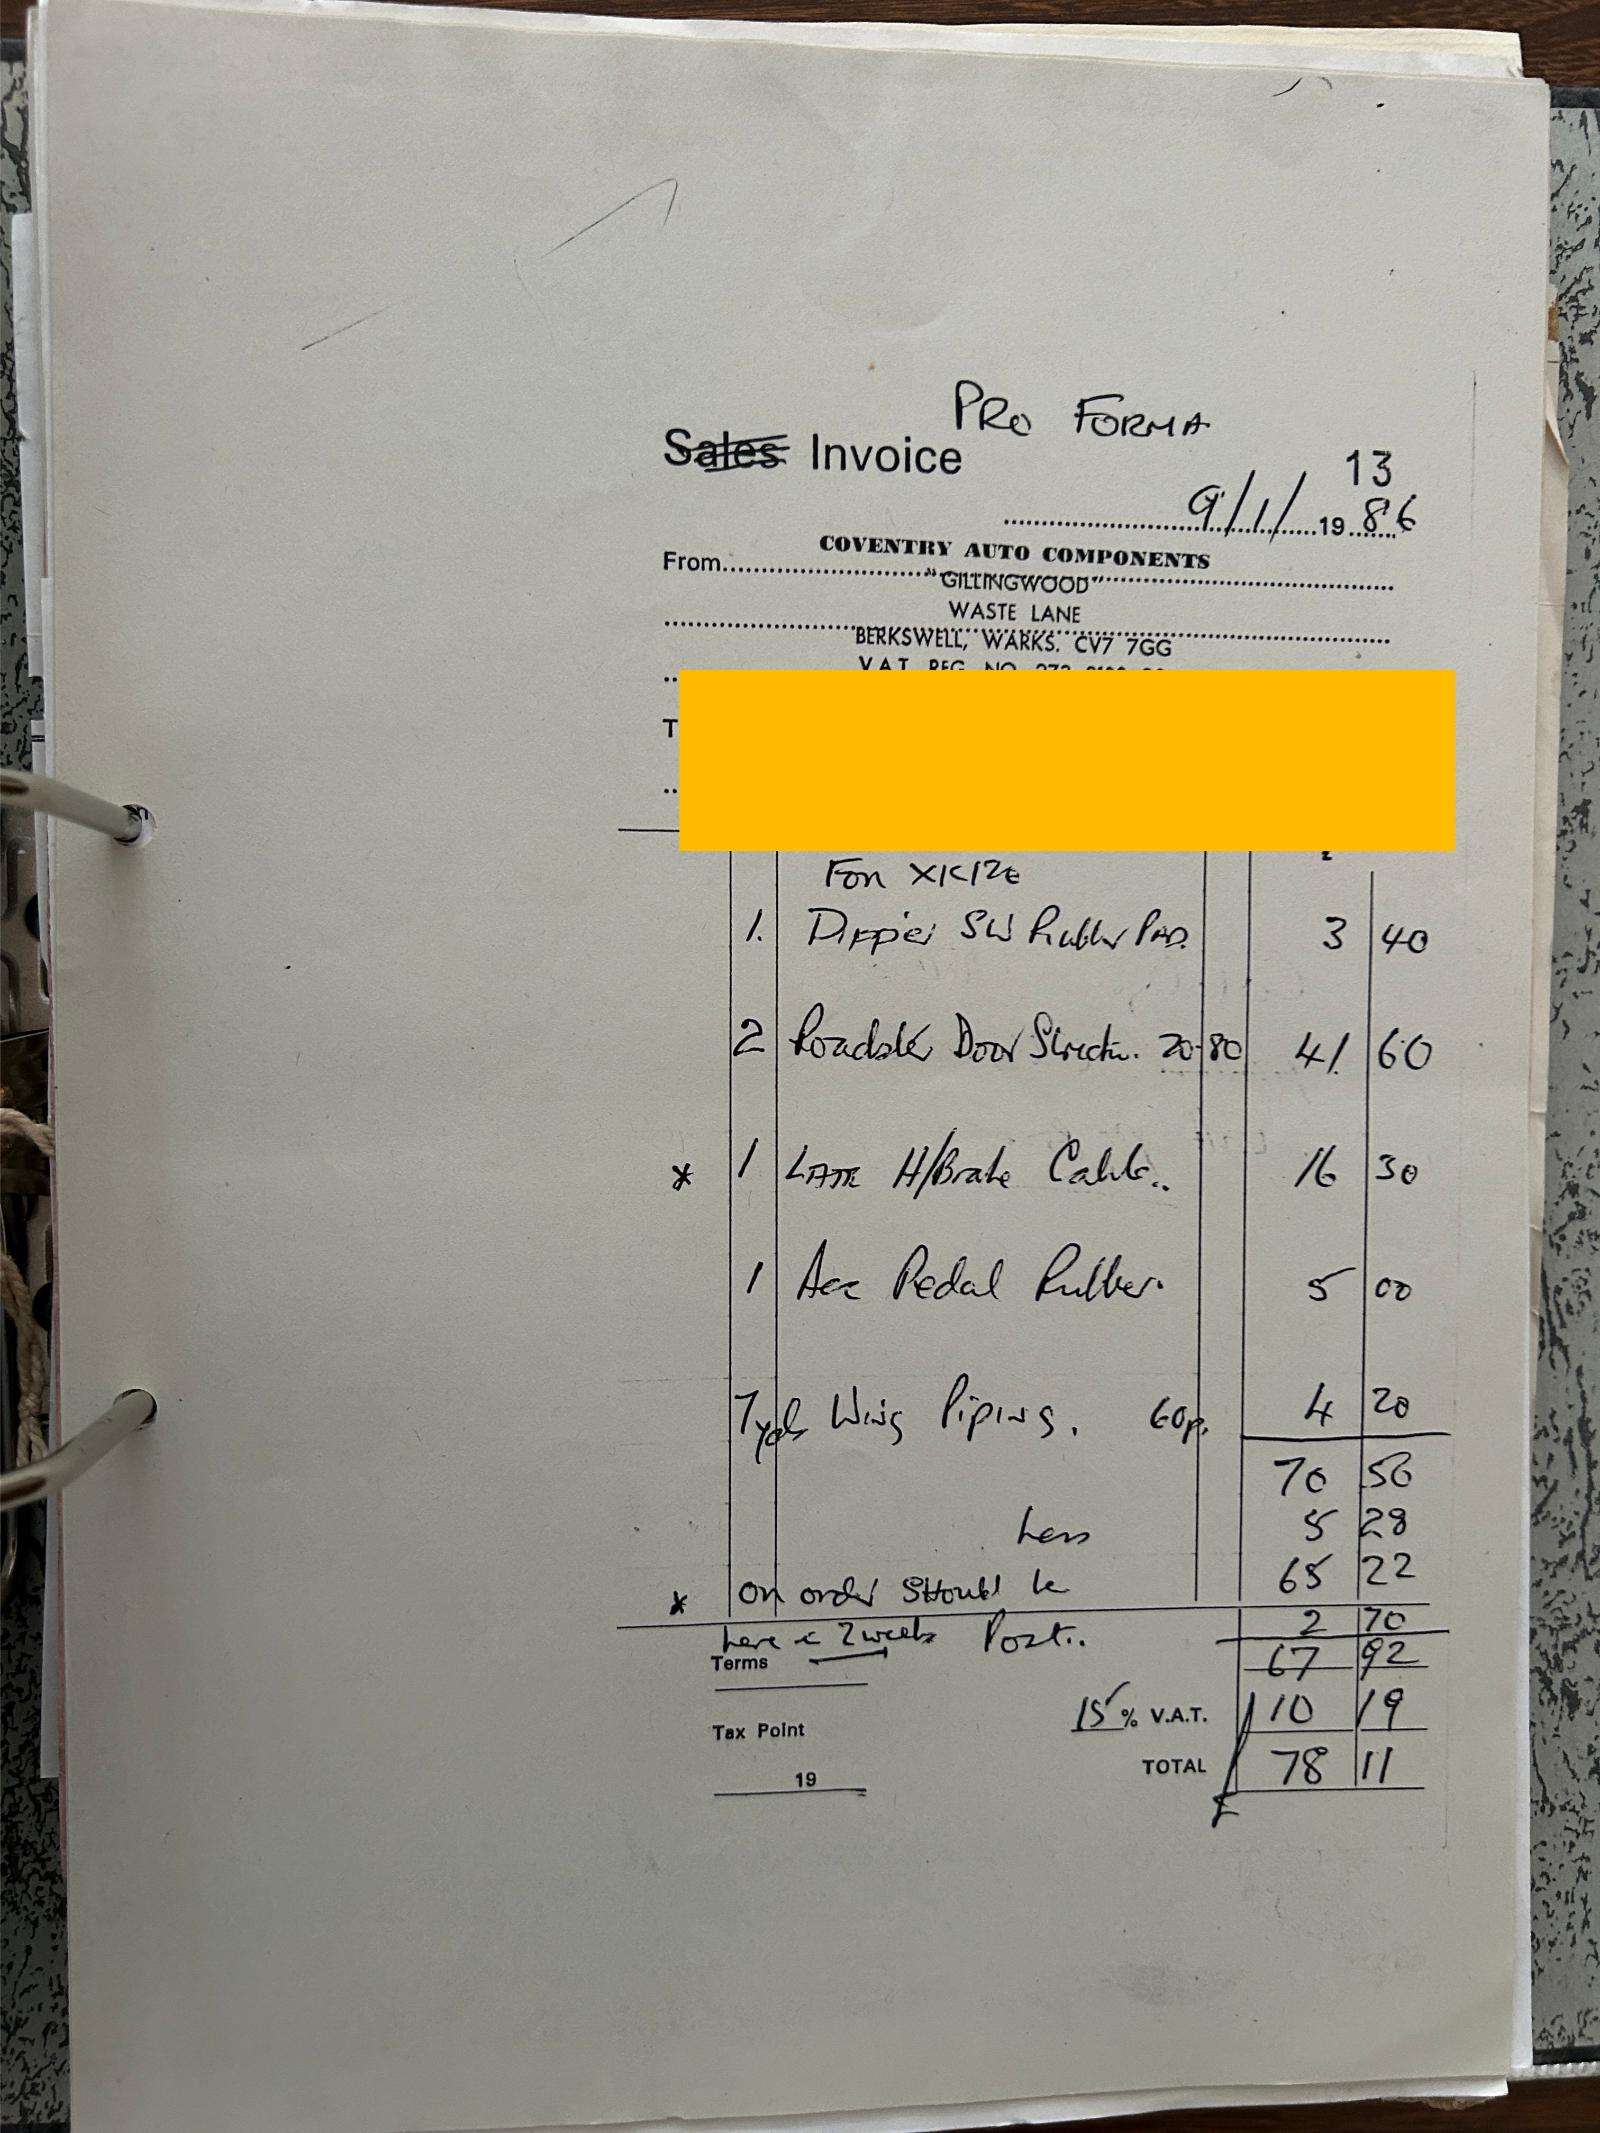 PRO FORMA
Sales Invoice
13
9/1/ 19 86
From COVENTRY AUTO COMPONENTS
"GILLINGWOOD"
WASTE LANE
BERKSWELL, WARKS. CV7 7GG
V.A.T. REG. NO.
T
For XK120
1. Dipper SW Rubber Pad. 3 40
2 Roadster Door 20-80 41 60
* 1 Late H/Brake Cable.. 16 30
1 Acc Pedal Rubber. 5 00
7yds Wing Piping. 60p. 4 20
70 50
Less 5 28
65 22
* on order should be
2 70
here < 2 weeks Post..
67 92
Terms
15 % V.A.T. 10 19
Tax Point
TOTAL £ 78 11
19